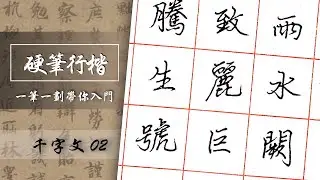 硬筆行楷
一筆一劃帶你入門
千字文 02
騰致雨
生麗水
號巨闕